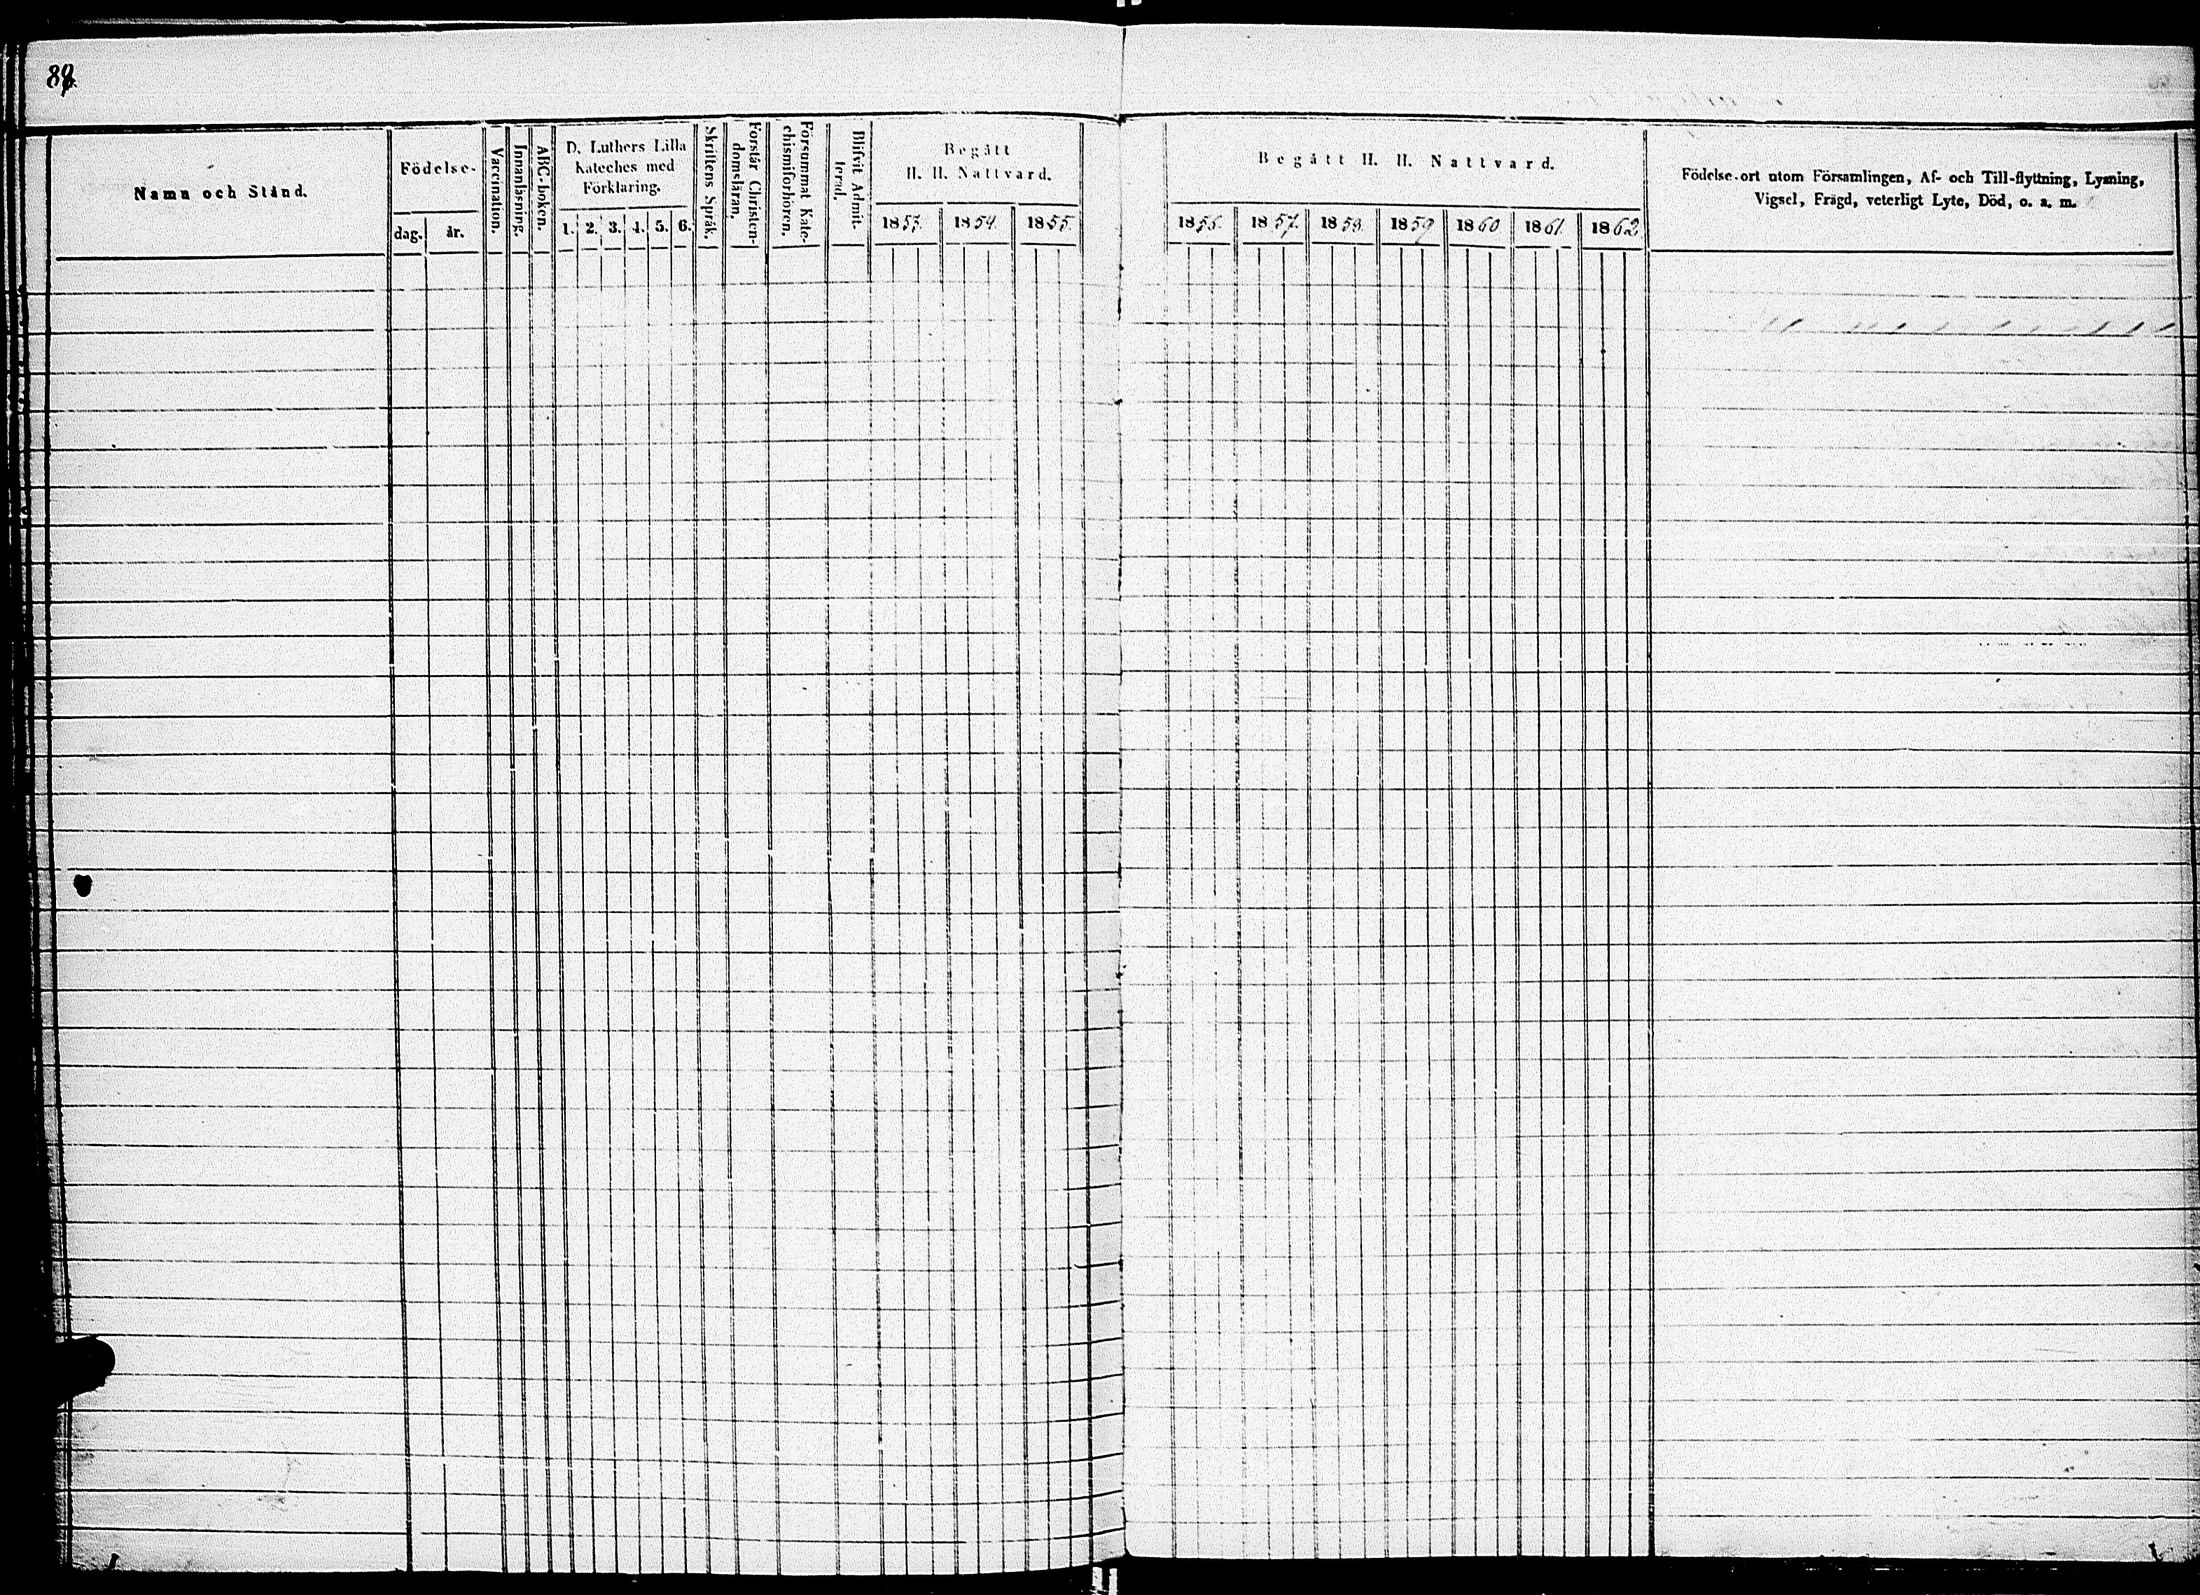 Namn och Stånd.
Födelse-
dag.
år.
Vaccination.
Innanläsning.
ABC-boken.
D. Luthers Lilla
Kateches med
Förklaring.
1. 2. 3. 4. 5. 6.
Skriftens Språk.
Förstår Christen-
domsläran.
Försummat Kate-
chismiförhören.
Blifvit Admit-
terad.
Begått
H. H. Nattvard.
1853. 1854. 1855.
Begått H. H. Nattvard.
1856. 1857. 1858. 1859 1860 1861. 1862.
Födelse-ort utom Församlingen, Af- och Till-flyttning, Lysning,
Vigsel, Frägd, veterligt Lyte, Död, o. a. m.